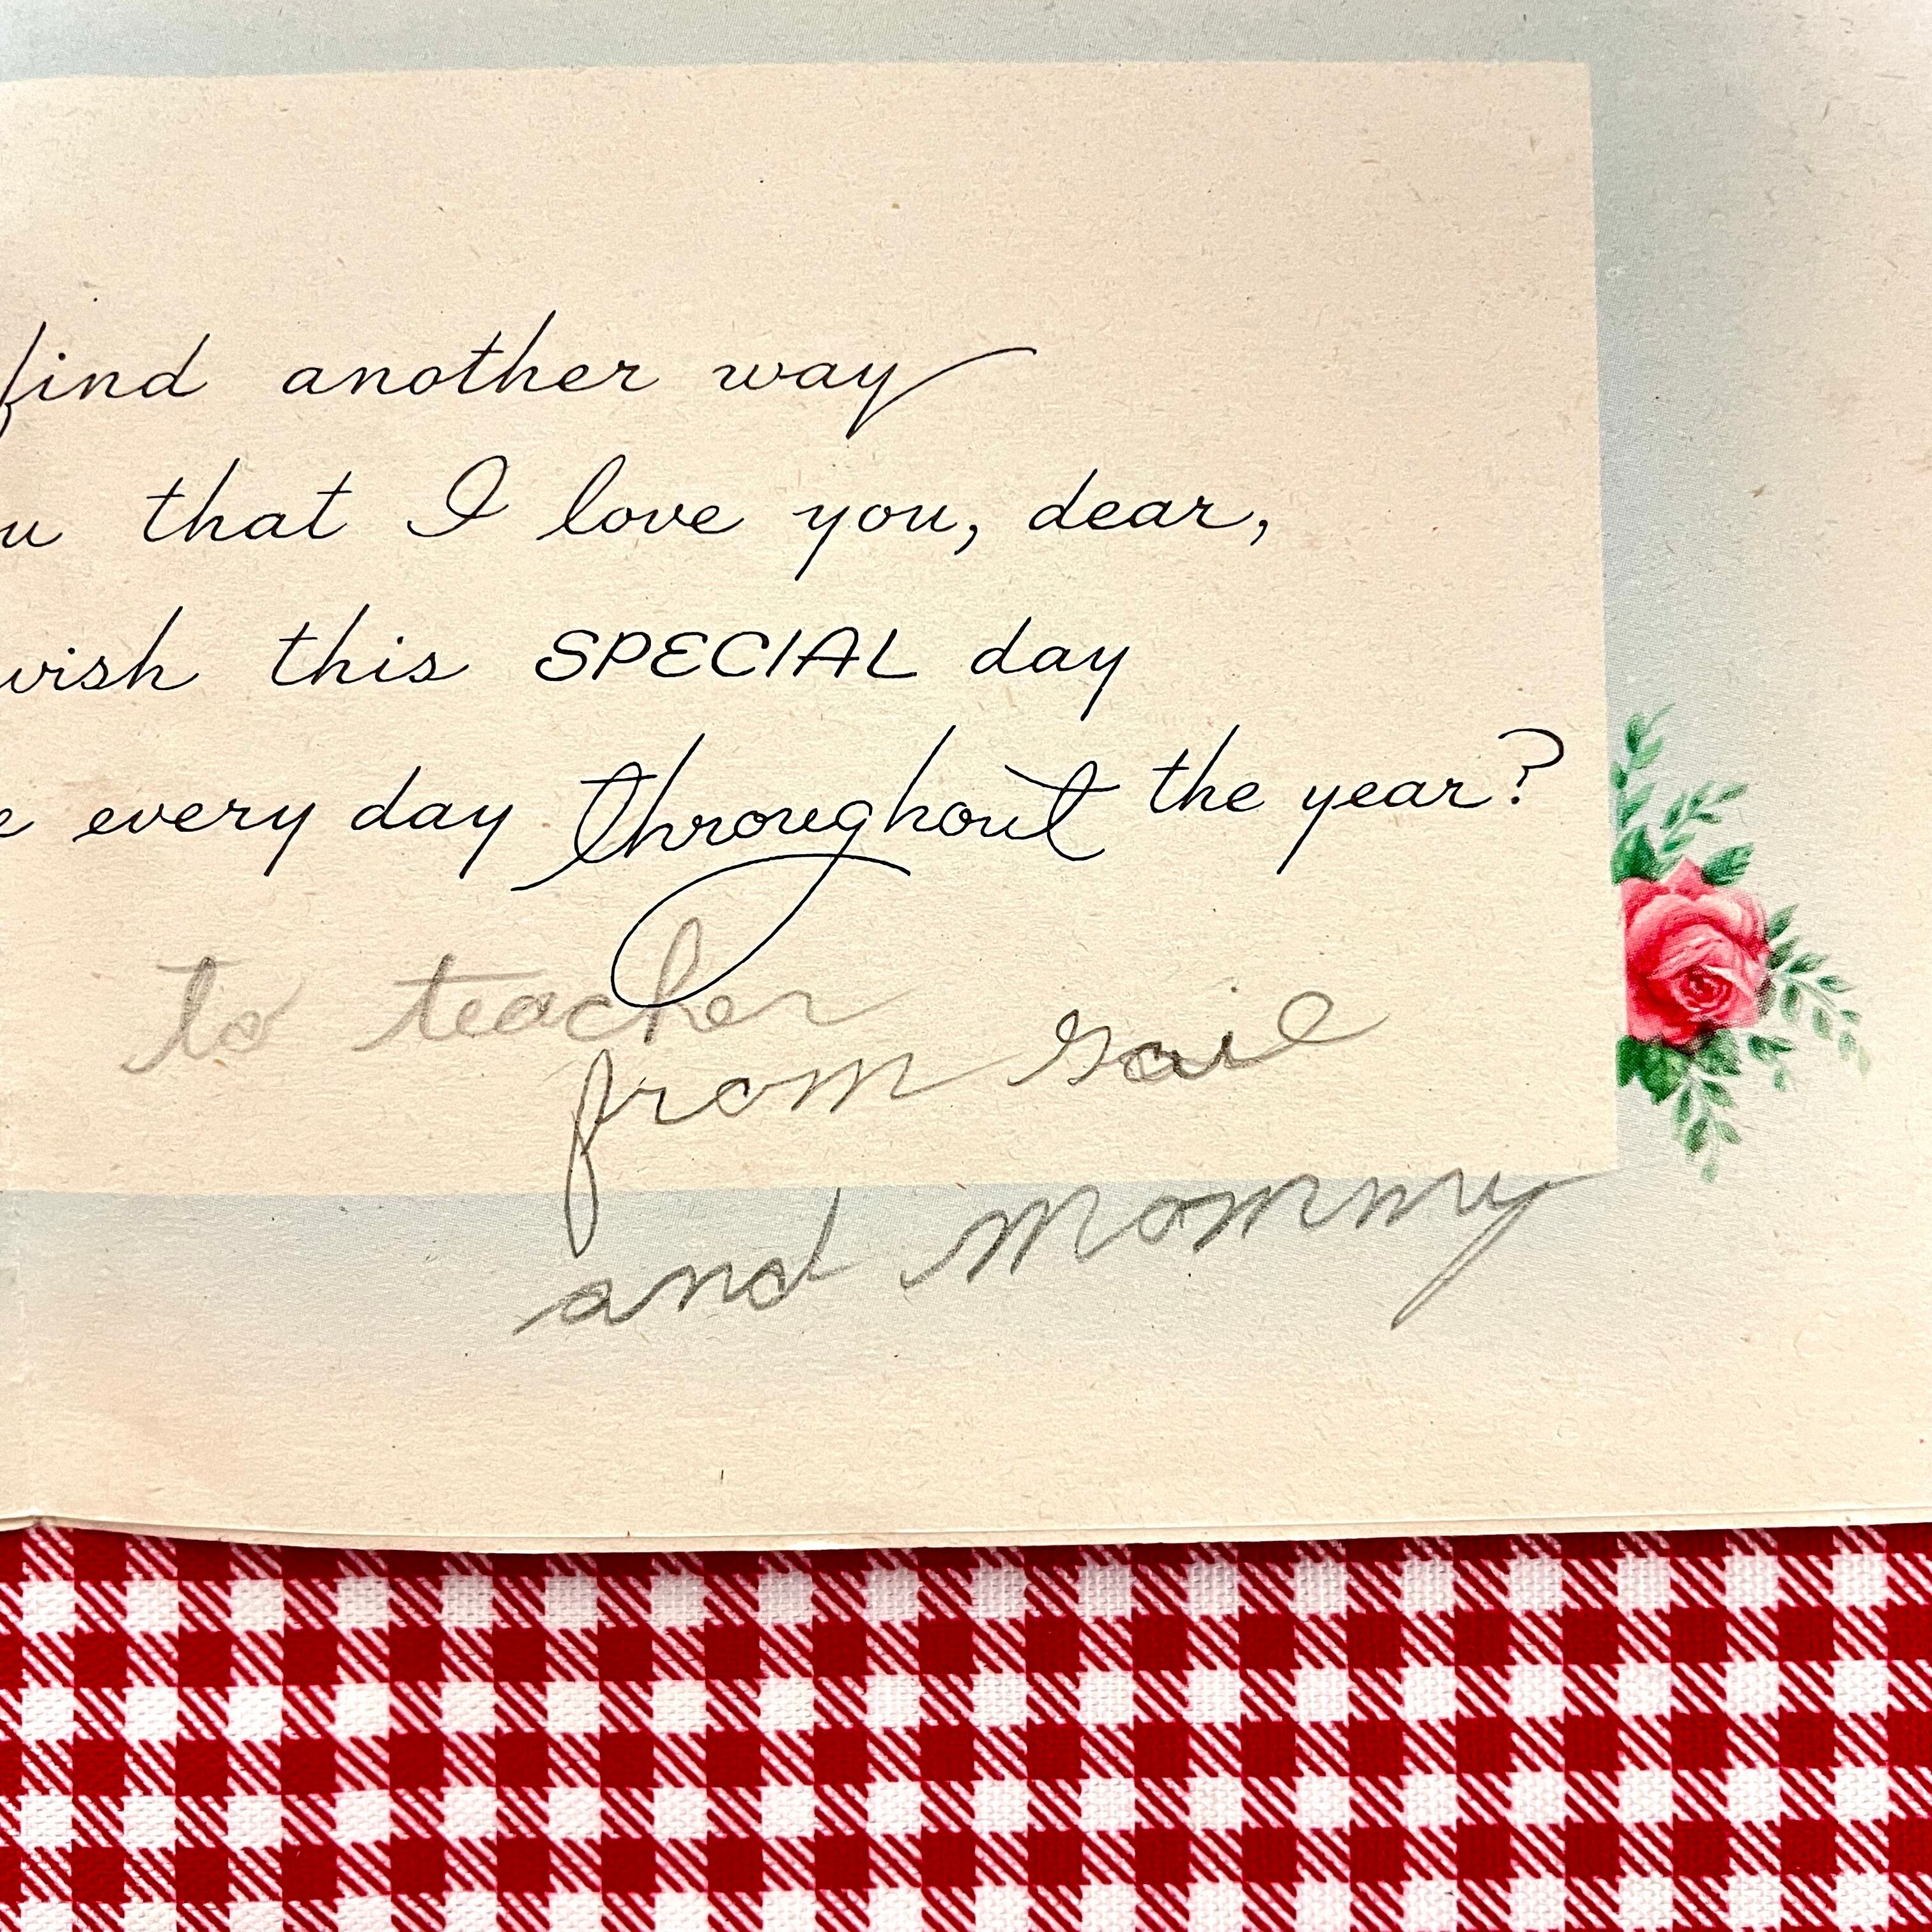 find another way
u that I love you, dear,
wish this SPECIAL day
e every day throughout the year?
to teacher
from
and mommy